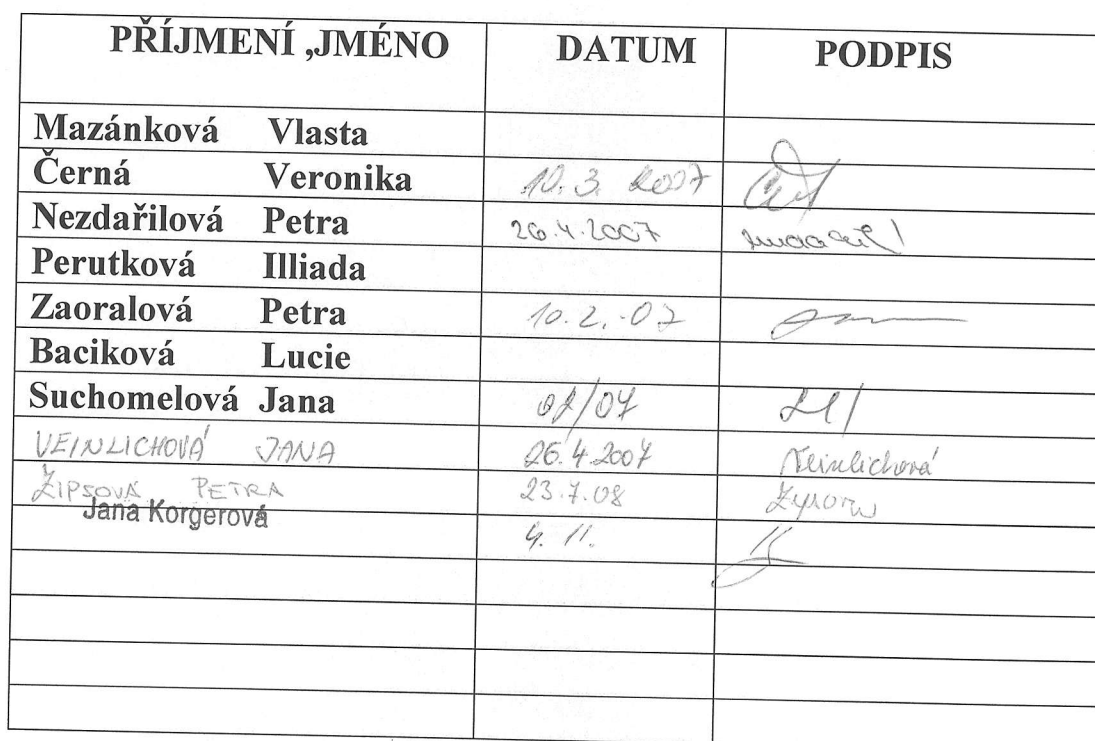 PŘÍJMENÍ ,JMÉNO DATUM PODPIS
Mazánková Vlasta
Černá Veronika 10.3. 2007
Nezdařilová Petra 26.4.2007
Perutková Illiada
Zaoralová Petra 10.2.-07
Baciková Lucie
Suchomelová Jana 07/07
VEINLICHOVÁ JANA 26.4.2007 Veinlichová
ŽIPSOVÁ PETRA 23.7.08
Jana Korgerová 4. 11.